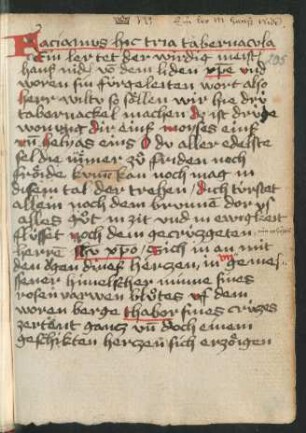 Faciamus hic tria tabernacula
Ein ler tet der wirdig meist
hanß nid vō dem liden xpē vnd
woren sin fürgeleiten wort also
herr wiltu so söllen wir hie drü
tabernackel machen dz ist dryg
wonung dir einß moises einß
vn̄ helyas eins O du aller edelste
sel die nimer zů finden noch
fröide kum̄ kan noch mag in
disem tal der trehen / dich türstet
allein noch dem brunnen dor vs
alles gůt in zit vnd in ewigkeit
flüsset noch dem gecrützgeten
herrē xpo / Sich in an mit
den ögen dines hertzen, in
sener himelscher minne sines
rosenvarwen blůtes vf dem
woren berge thabor sines crützes
zertent gantz vn̄ doch einem
geschikten hertzen sich erzöigen